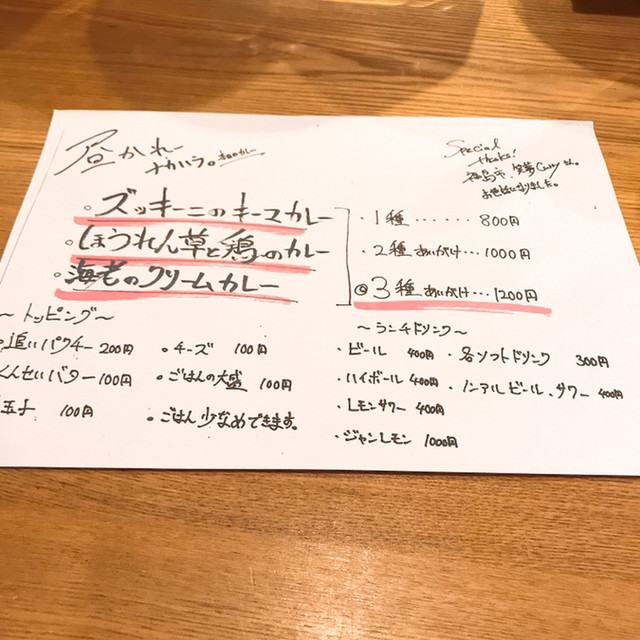 昼かれー
ナカハラ。
Special
thanks!
福島市、笑夢Curryさん。
お世話になりました。
・ズッキーニのキーマカレー
・ほうれん草と鶏のカレー
・海老のクリームカレー
・1種・・・・・・800円
・2種あいがけ・・・1000円
◎3種あいがけ・・・1200円
〜トッピング〜
・追いパクチー200円
くんせいバター100円
玉子 100円
・チーズ 100円
・ごはんの大盛 100円
・ごはん少なめできます。
〜ランチドリンク〜
・ビール 400円
・ハイボール 400円
・レモンサワー 400円
・ジャンレモン 1000円
・各ソフトドリンク 300円
・ノンアルビール、サワー 400円